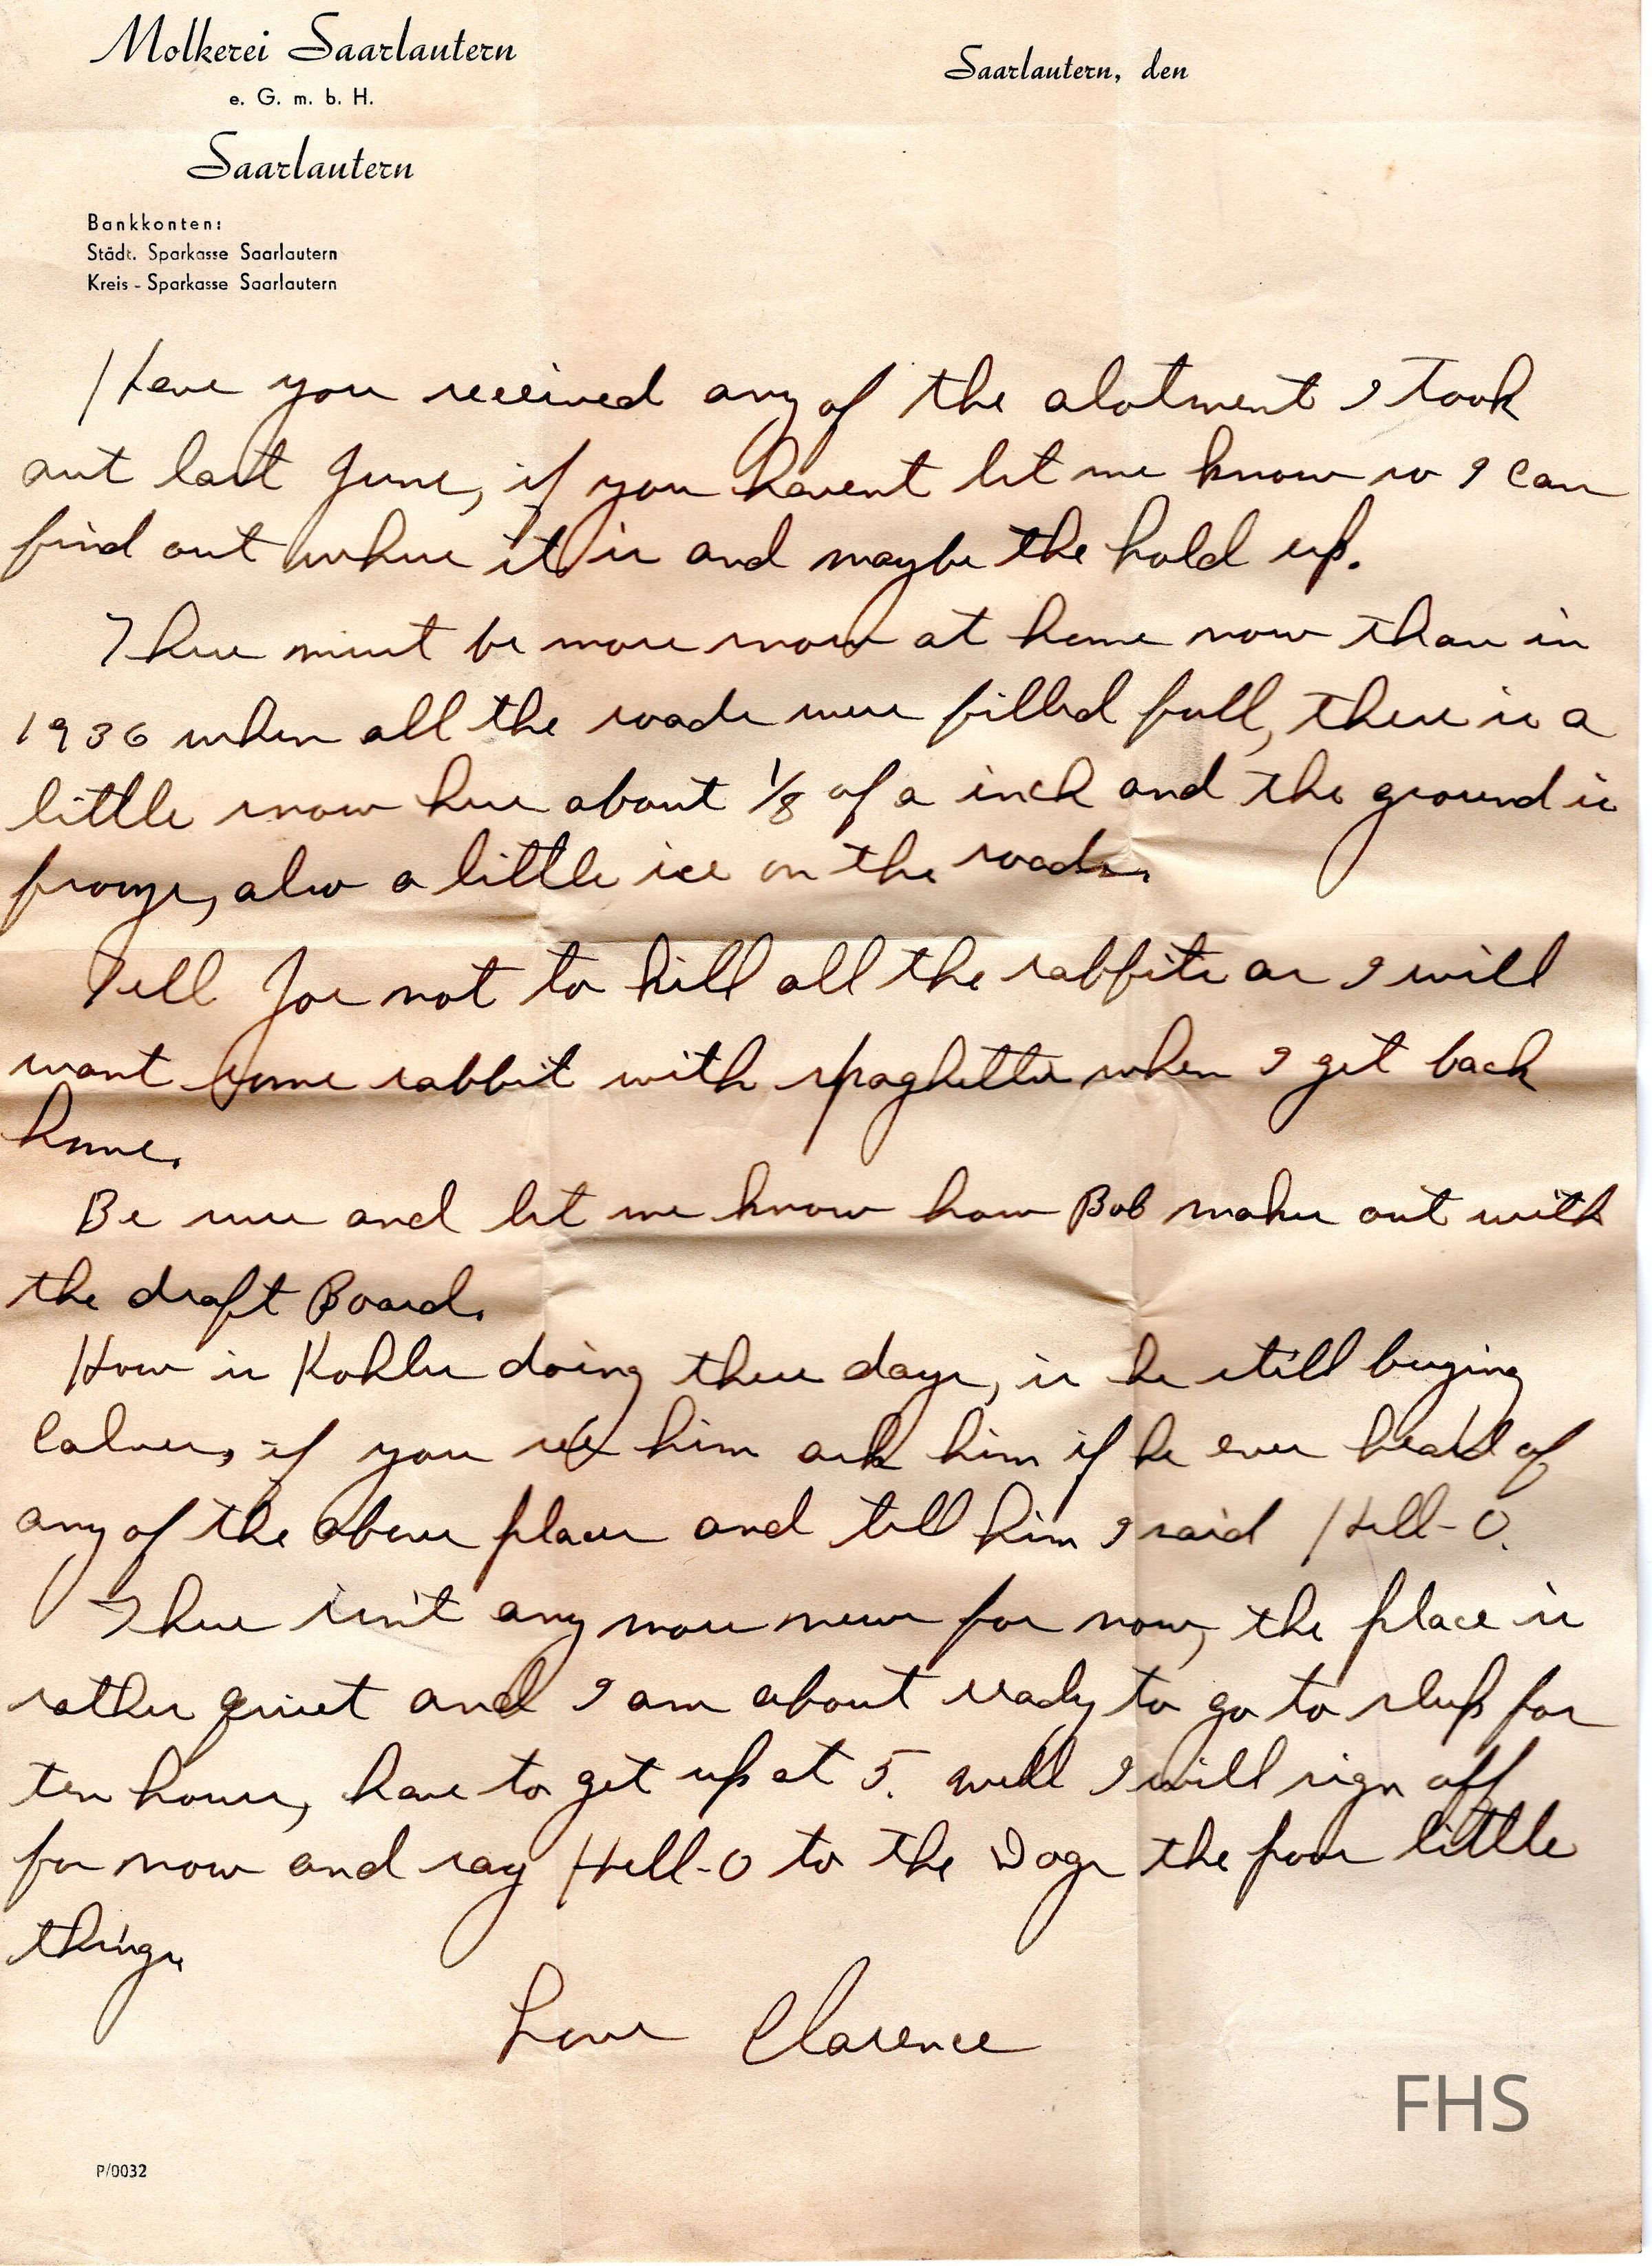 Molkerei Saarlautern
Saarlautern, den
e. G. m. b. H.
Saarlautern
Bankkonten:
Städt. Sparkasse Saarlautern
Kreis - Sparkasse Saarlautern
Have you received any of the alotment I took
out last June, if you havent let me know so I can
find out where it is and maybe the hold up.
There must be more snow at home now than in
1936 when all the roads were filled full, there is a
little snow here about 1/8 of a inch and the ground is
froze, also a little ice on the roads.
Tell Joe not to kill all the rabbits as I will
want some rabbit with spaghettie when I get back
home.
Be sure and let me know how Bob makes out with
the draft Board.
How is Kohler doing these days, is he still buying
Calves, if you see him ask him if he ever heard of
any of the above places and tell him I said Hell-O.
There isn't any more news for now, the place is
rather quiet and I am about ready to go to sleep for
ten hours, have to get up at 5. well I will sign off
for now and say Hell-O to the Dogs the poor little
things.
Love Clarence
FHS
P/0032